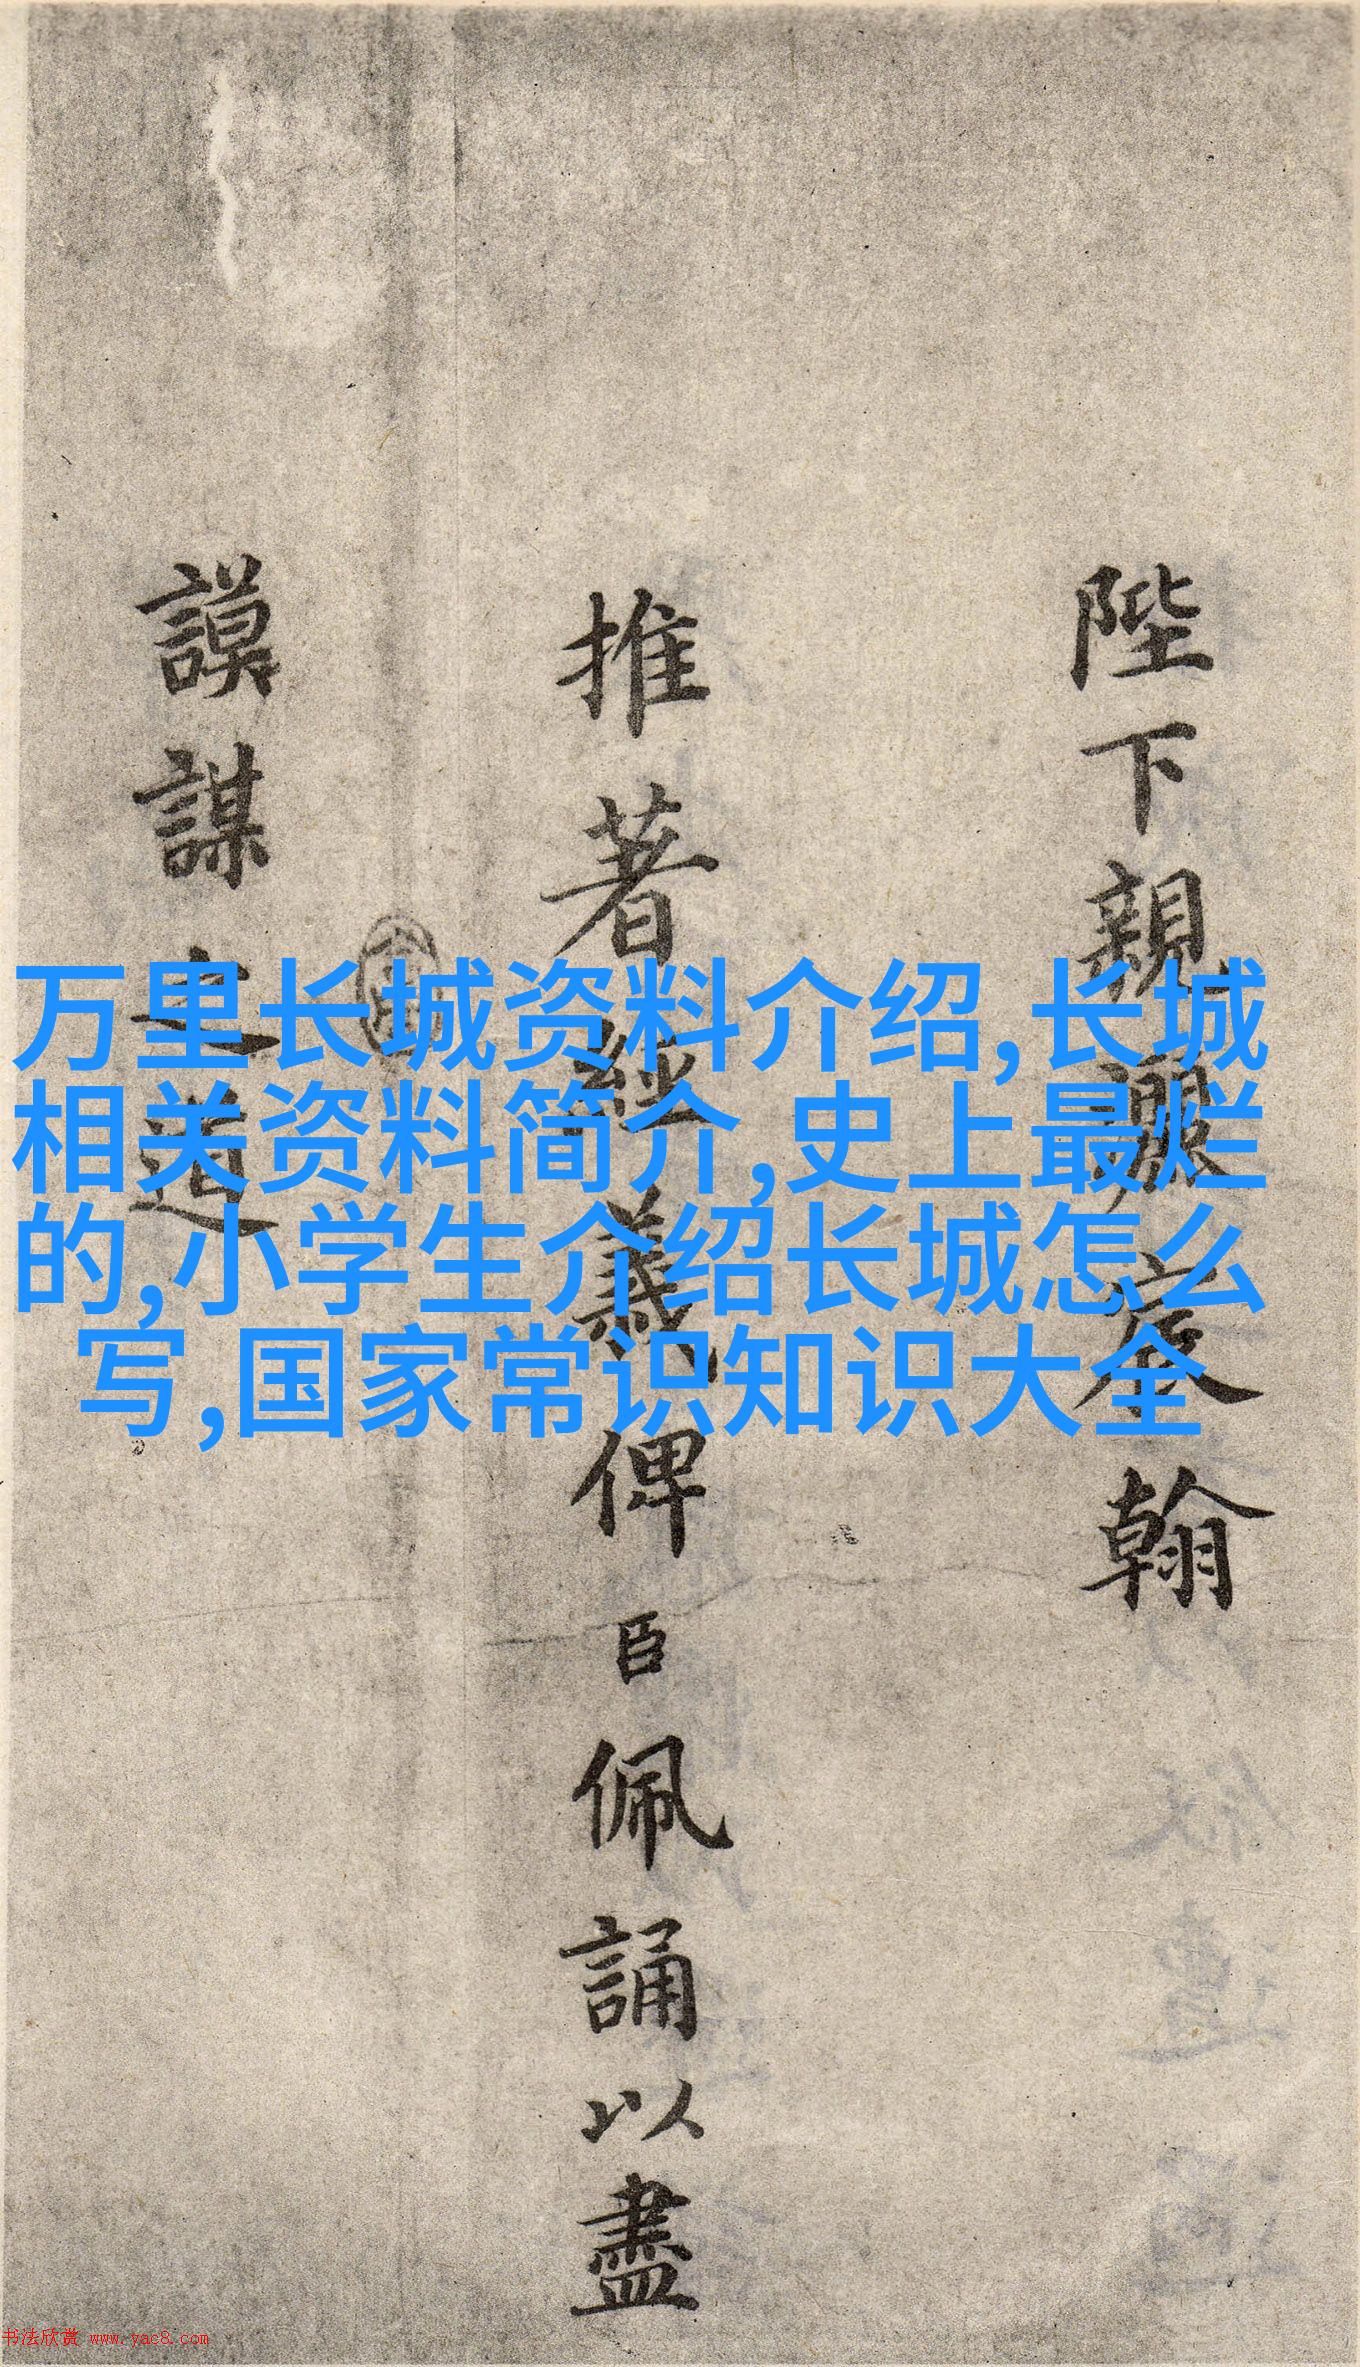 陛下親灑宸翰
推著經義俾臣佩誦以盡
謨謀之道
万里长城资料介绍,长城
相关资料简介,史上最烂
的,小学生介绍长城怎么
写,国家常识知识大全
书法欣赏 www.yac8.com